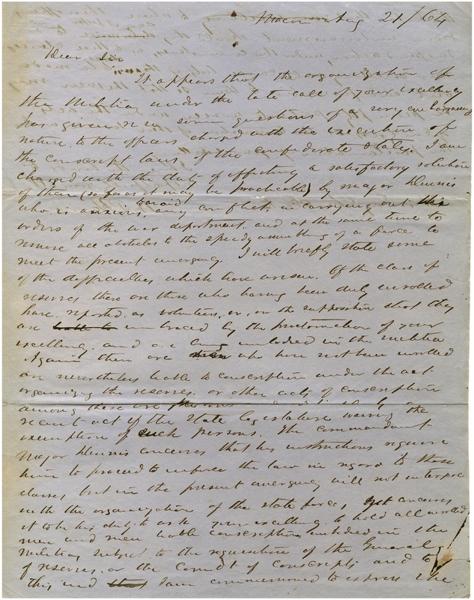 21/64
Dear Sir
It appears that the organization of
the Militia under the late call of your excellency
has given rise some questions of a very embarrassing
nature to the officers charged with the execution of
the conscript laws of the confederate States, I am
charged with the duty of effecting a satisfactory solution
of them (so far as it may be practicable) by major Dennis
who is anxious to avoid any conflict in carrying out the
orders of the war department, and at the same time to
remove all obstacles to the speedy assembling of a force to
meet the present emergency. I will briefly state some
of the difficulties which have arisen. Of the class of
reserves there are those who having been duly enrolled
have reported as volunteers, or, on the supposition that they
are embraced by the proclamation of your
excellency, and are embodied in the militia
Again there are who have not been enrolled
are nevertheless liable to conscription under the act
organizing the reserves, or other acts of conscription
among these are
recent act of the State legislature waiving the
exemption of such persons. The commandant
Major Dennis conceives that his instructions require
him to proceed to enforce the law in regard to these
classes but in the present emergency will not interfere
with the organization of the state forces, yet conceives
it to be his duty to ask your excellency to hold all enrolled
men and men liable conscription embodied in the
militia, subject to the requisition of the General
of reserves, or the comdt of conscripts and to
this end I am commissioned to express the